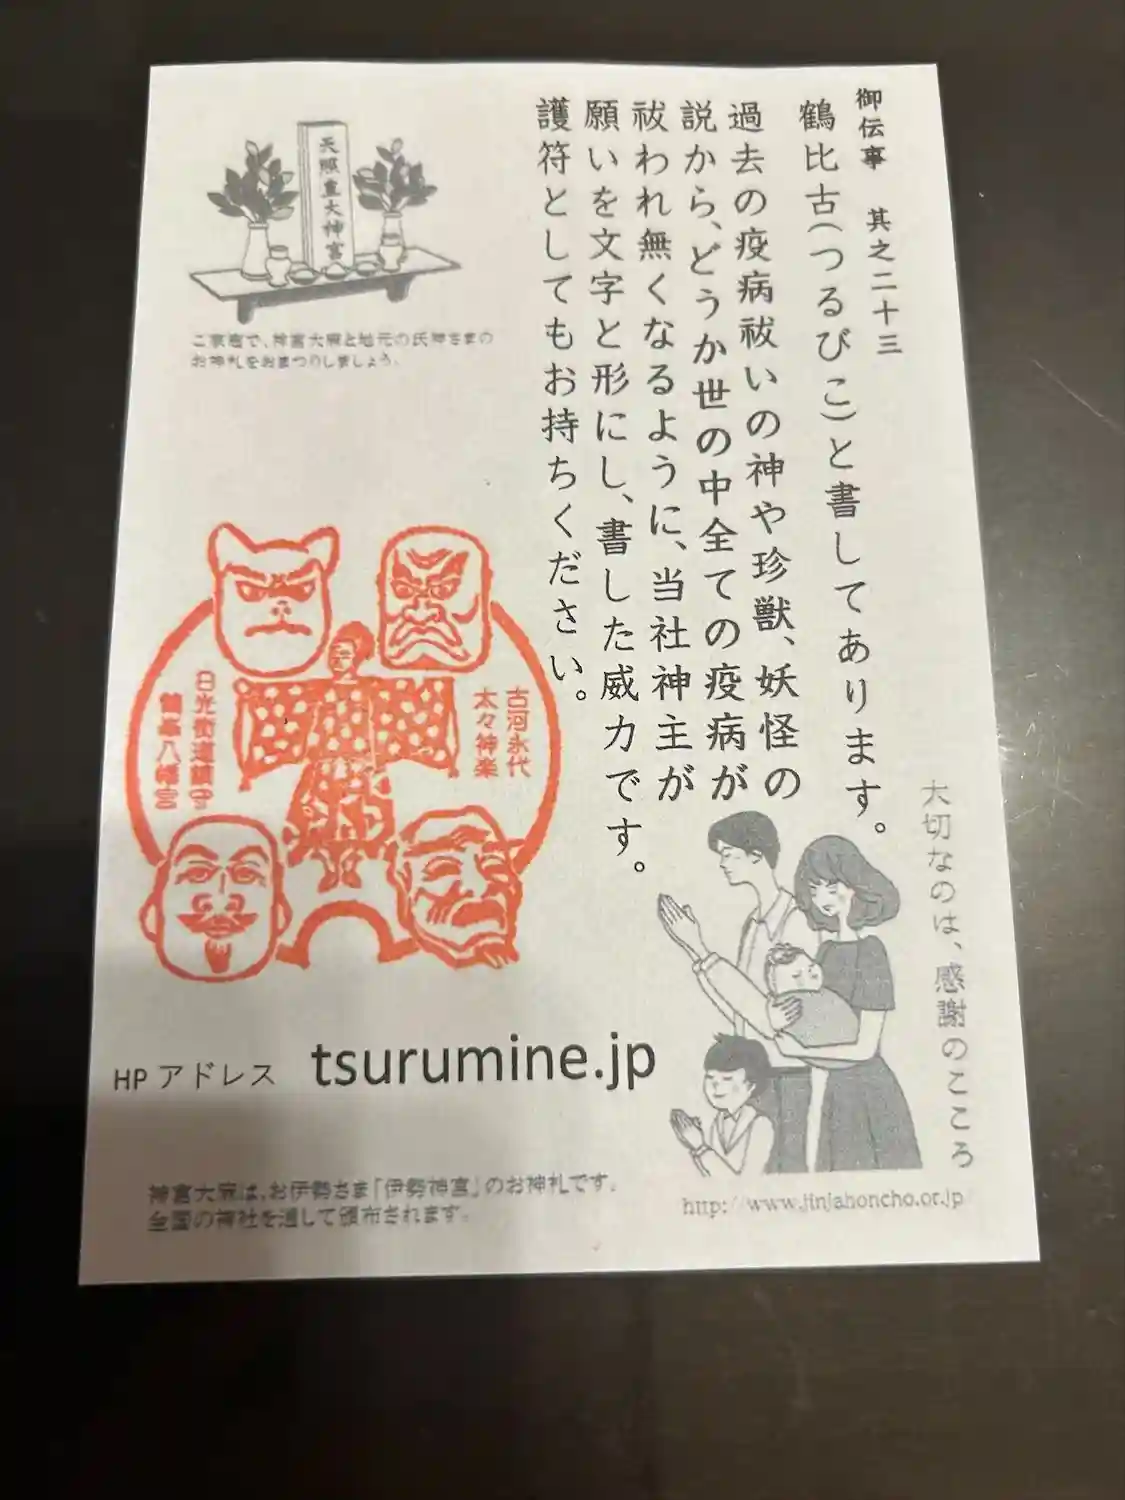 御伝事 其之二十三
鶴比古(つるびこ)と書してあります。
過去の疫病祓いの神や珍獣、妖怪の
説から、どうか世の中全ての疫病が
祓われ無くなるように、当社神主が
願いを文字と形にし、書した威力です。
護符としてもお持ちください。
天照皇大神宮
ご家庭で、神宮大麻と地元の氏神さまの
お神札をおまつりしましょう。
古河永代
太々神楽
日光街道鎮守
鶴峯八幡宮
大切なのは、感謝のこころ
HP アドレス tsurumine.jp
神宮大麻は、お伊勢さま「伊勢神宮」のお神札です。
全国の神社を通して頒布されます。
http://www.jinjahoncho.or.jp